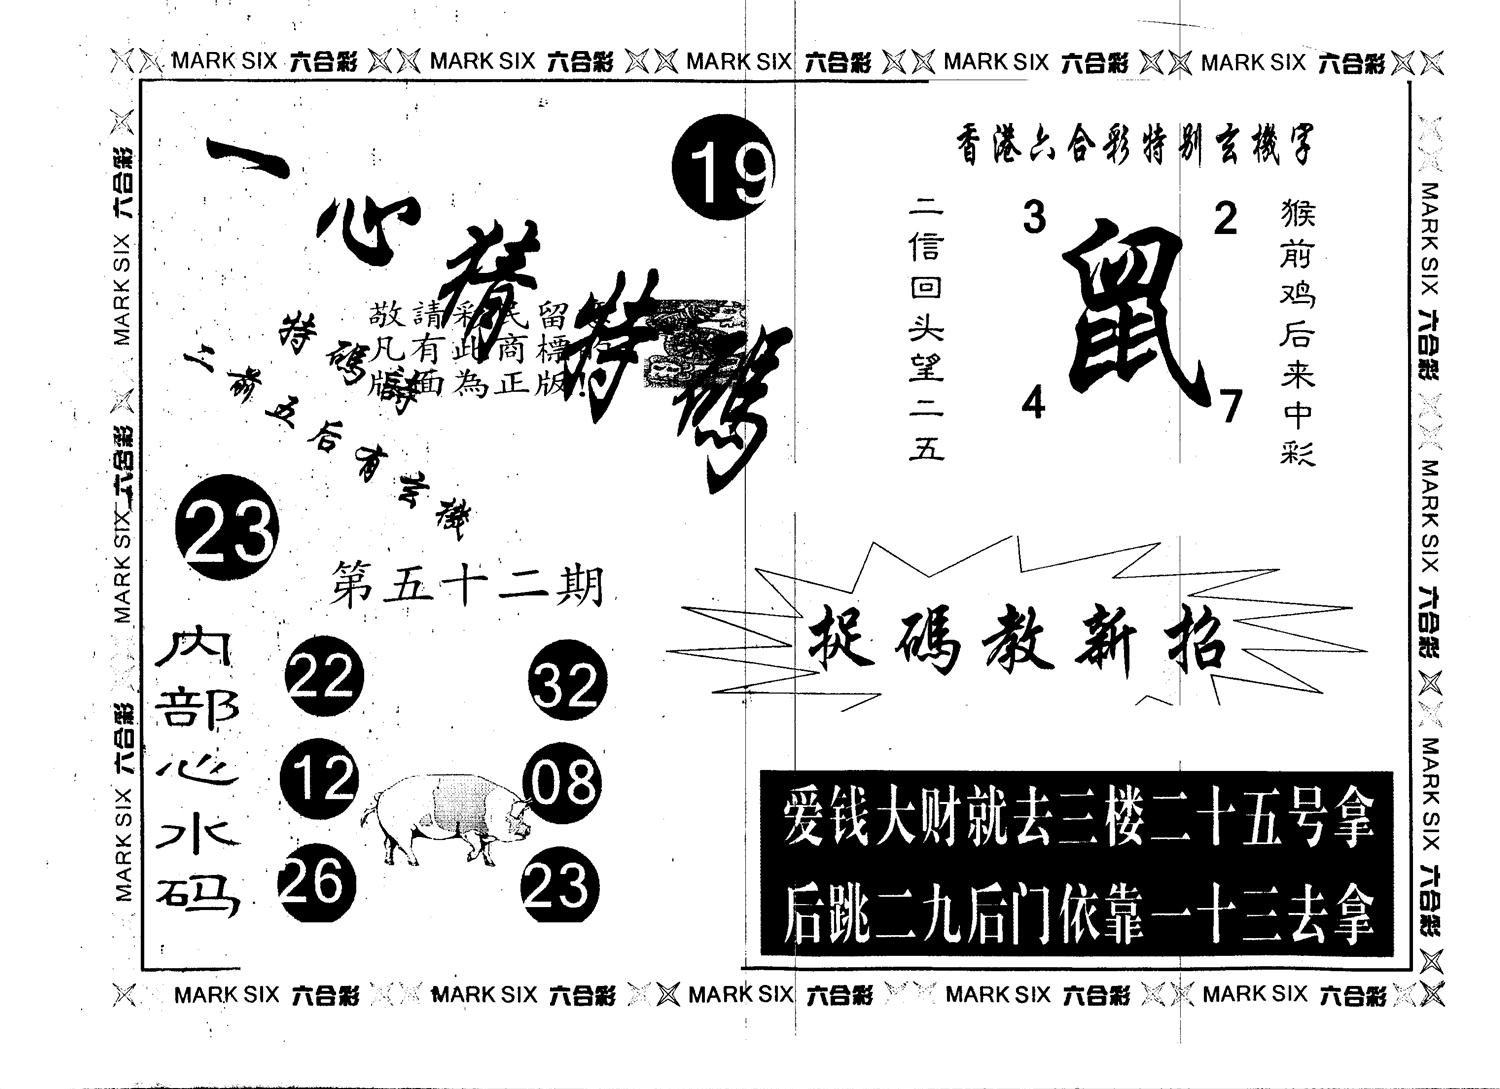 MARK SIX 六合彩 MARK SIX 六合彩 MARK SIX 六合彩 MARK SIX 六合彩 MARK SIX 六合彩
六合彩 MARK SIX 六合彩 MARK SIX 六合彩 MARK SIX
一心猜特碼
19
敬請彩民留意
凡有此商標的
版面為正版!
特碼詩
二前五后有玄機
23
第五十二期
内部心水码
22
32
12
08
26
23
香港六合彩特别玄機字
二信回头望二五
3
2
鼠
4
7
猴前鸡后来中彩
捉碼教新招
爱钱大财就去三楼二十五号拿
后跳二九后门依靠一十三去拿
MARK SIX 六合彩 MARK SIX 六合彩 MARK SIX 六合彩
MARK SIX 六合彩 MARK SIX 六合彩 MARK SIX 六合彩 MARK SIX 六合彩 MARK SIX 六合彩